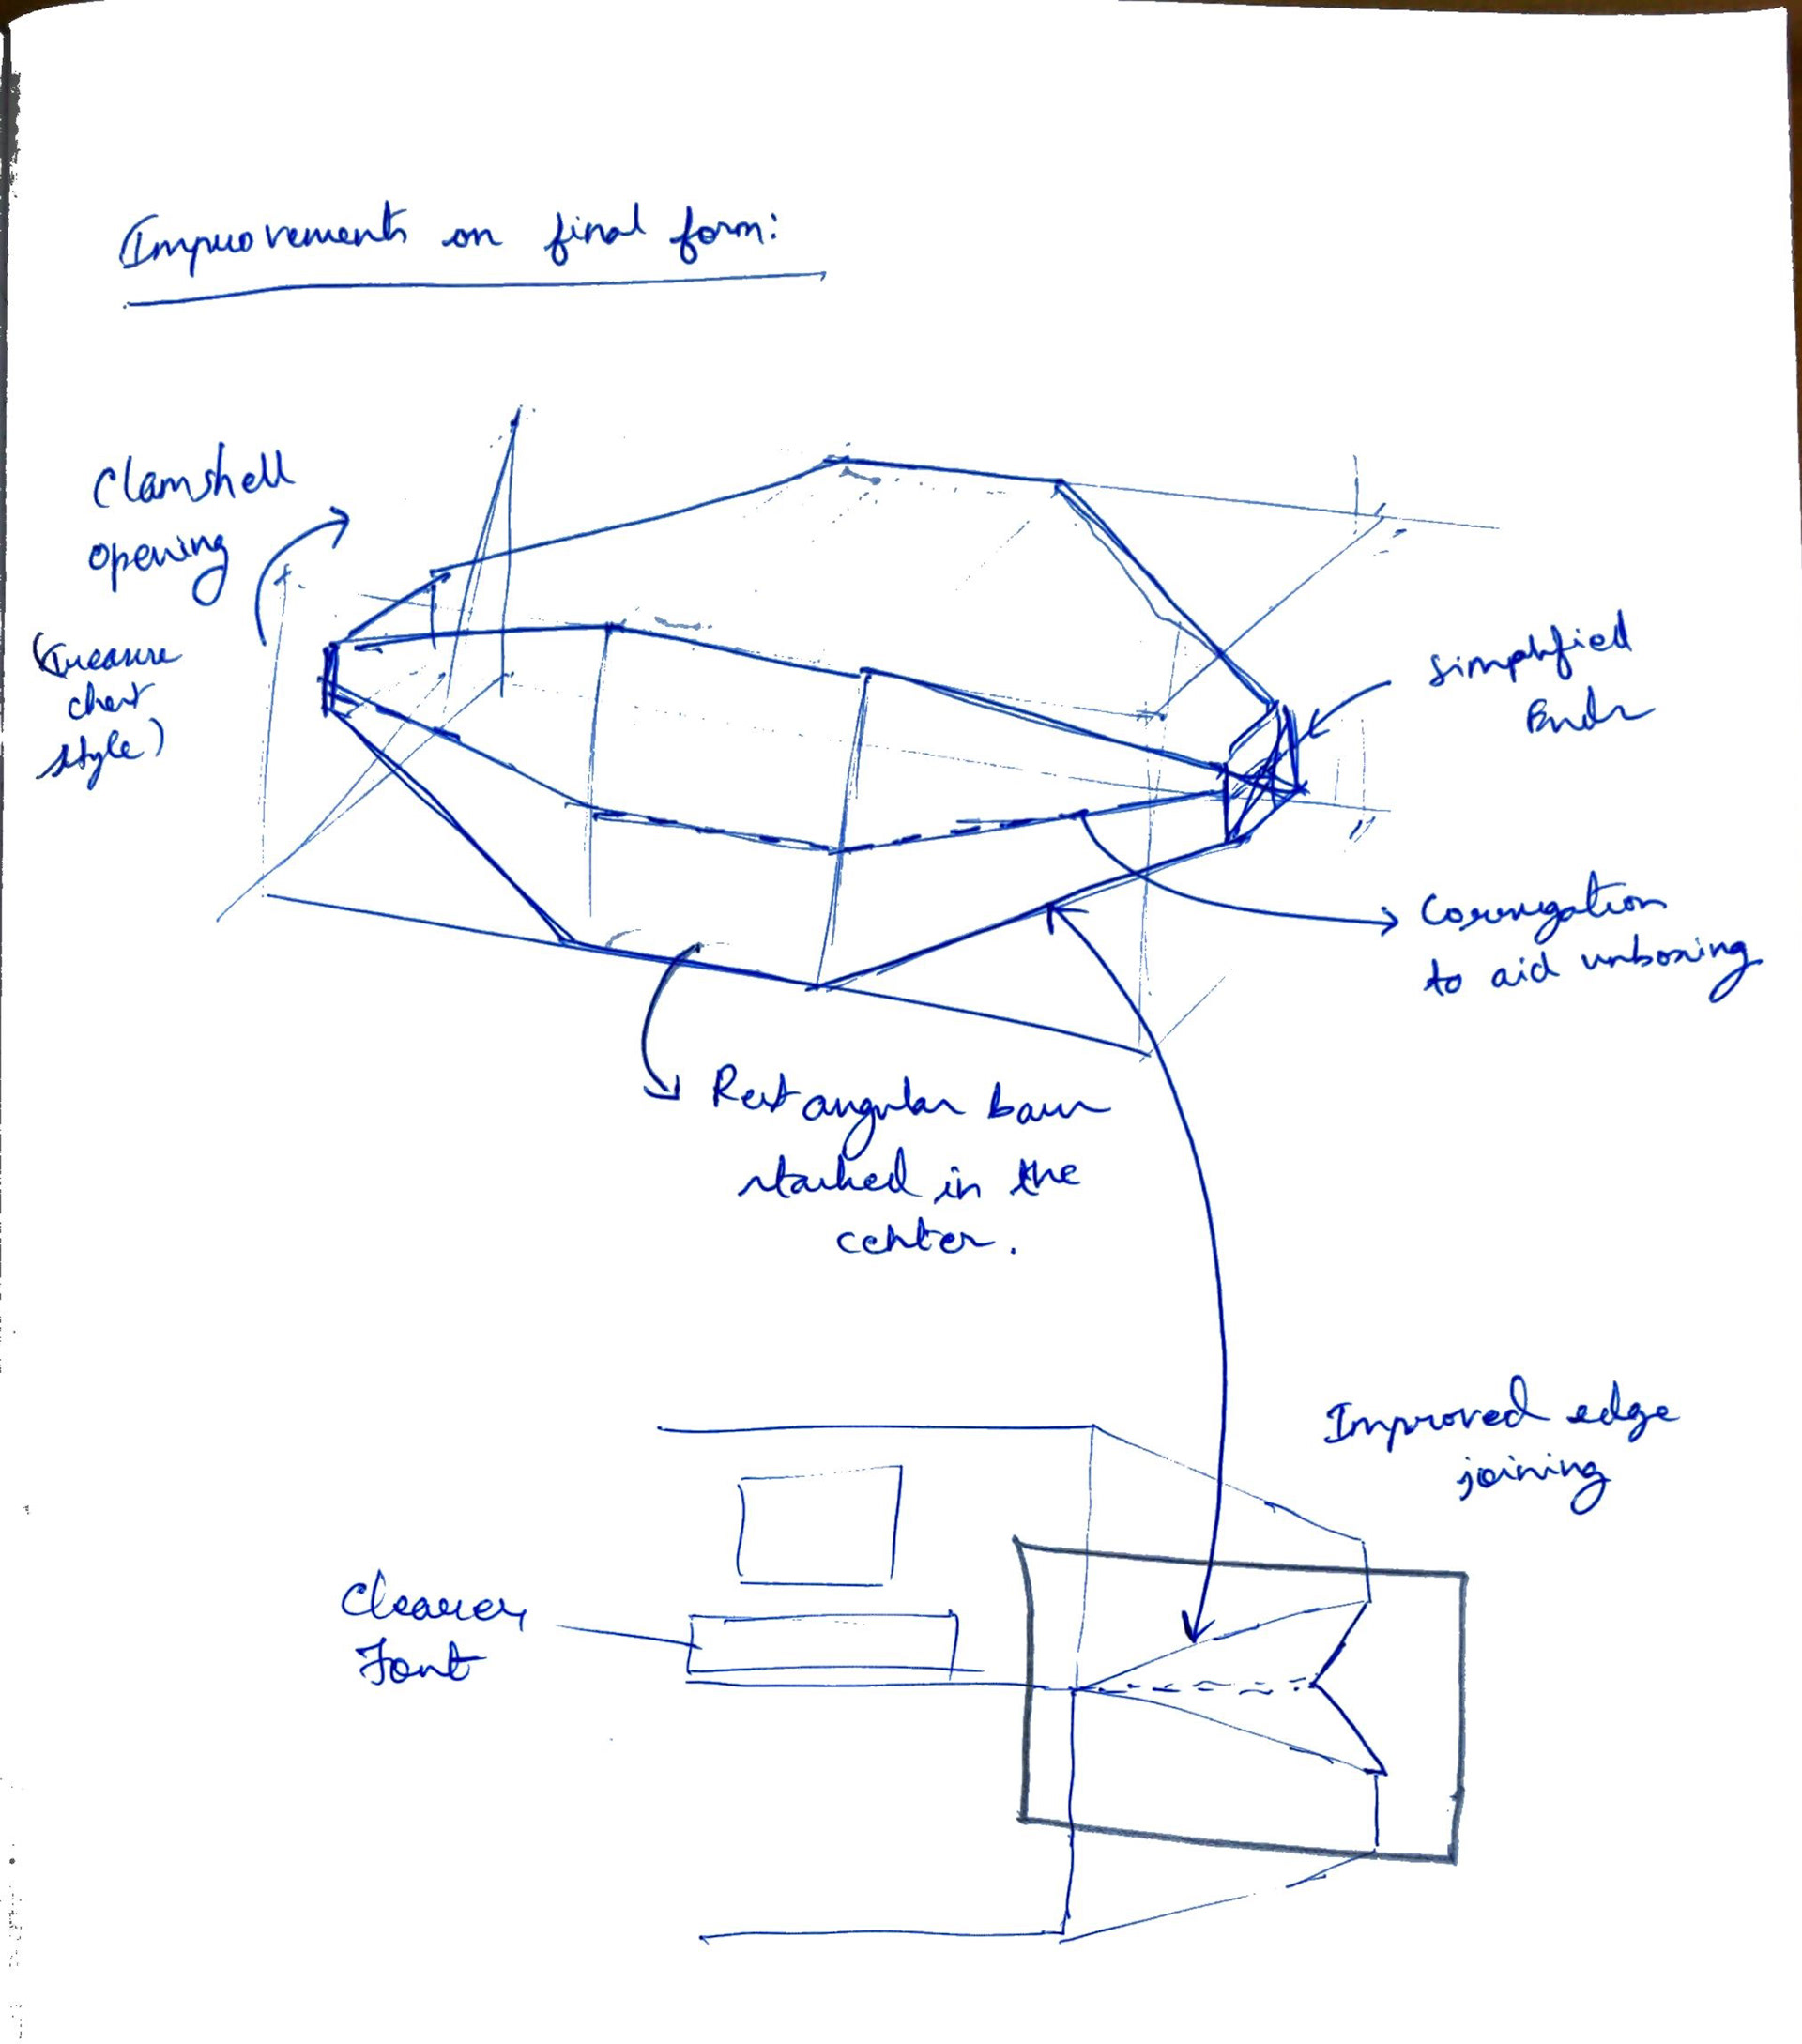 Improvements on final form:
Clamshell
opening
(Treasure
chest
style)
simplified
Ends
Corrugation
to aid unboxing
Rectangular bars
stacked in the
center.
Improved edge
joining
Cleaner
Font